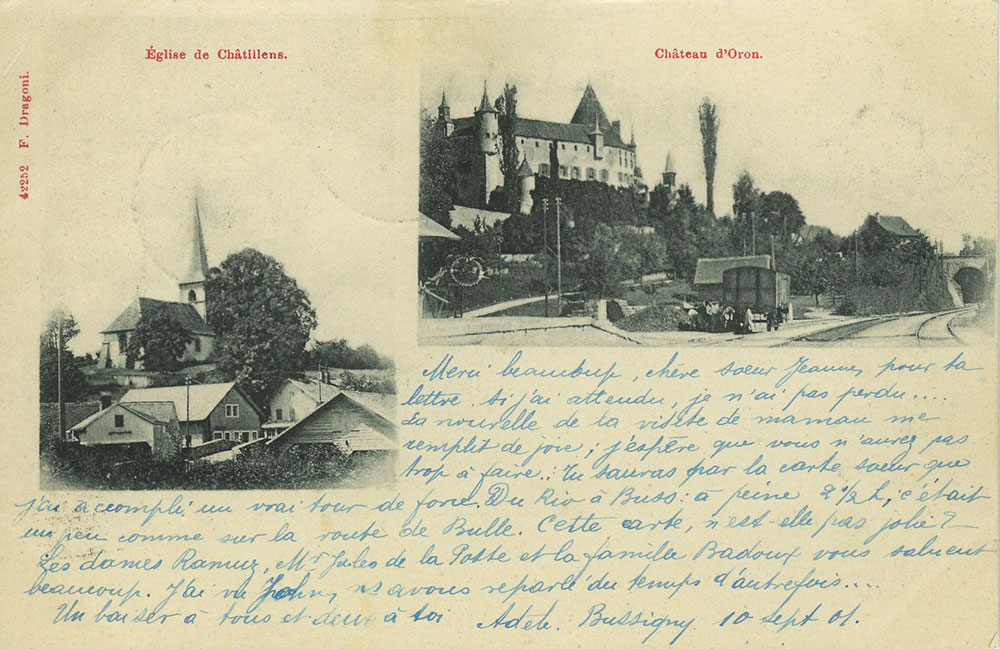 Église de Châtillens.
Château d'Oron.
42252 F. Dragoni.
Merci beaucoup, chère sœur Jeanne, pour ta
lettre. si j'ai attendu, je n'ai pas perdu....
La nouvelle de la visite de maman me
remplit de joie; j'espère que vous n'aurez pas
trop à faire.. Tu sauras par la carte sœur que
j'ai accompli un vrai tour de force. Du à Buss: à peine 2 1/2 h; c'était
un peu comme sur la route de Bulle. Cette carte, n'est elle pas jolie?
Les dames Ramuz, Mr Jules de la Poste et la famille Badoux vous saluent
beaucoup. J'ai vu John, ns avons reparlé du temps d'autrefois....
Un baiser à tous et deux à toi Adèle. Bussigny 10 sept 01.